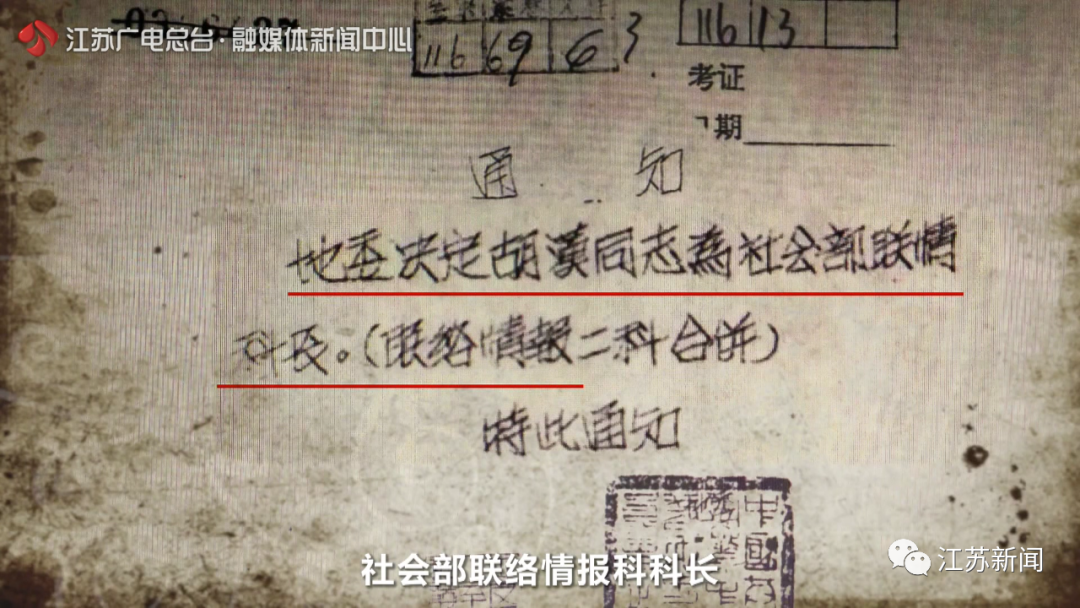 江苏广电总台·融媒体新闻中心
116 69 6 3
116 13
考证
期
通 知
地委决定胡漢同志為社会部联情
科長。(联络情報二科合併)
特此通知
社会部联络情报科科长
江苏新闻